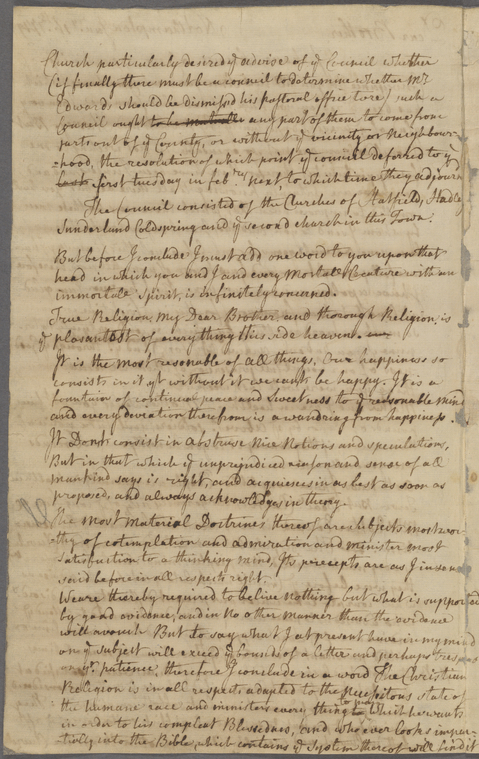 Church particularly desired ye advise of ye Council whether
(if finally there must be a council to determine whether Mr
Edwards should be dismissed his pastoral office here) such a
Council ought to be any part of them to come from
parts out of ye County, or without ye vicinity or Neighbour-
-hood, the resolution of which point ye council deferred to ye
last first tuesday in feb.ry next, to which time they adjourn
The Council consisted of the Churches of Hatfield, Hadley
Sunderland Coldspring and ye second church in this Town.
But before I conclude I must add one word to you upon that
head in which you and I and every Mortal Creature with an
immortal Spirit, is infinitely concerned.
True Religion, My Dear Brother, and thorough Religion, is
ye pleasantest of everything this side heaven.
It is the most reasonable of all things. Our happiness so
consists in it yt without it we cant be happy. It is a
fountain of continual peace and Sweetness to ye reasonable mind
and every deviation therefrom is a wandring from happiness.
It Dont consist in abstruse Nice Notions and speculations,
But in that which ye unprejudiced reason and sense of all
mankind says is right, and acquiesces in as best as soon as
proposed, and always acknowledges in theory.
The Most Material Doctrines thereof are subjects most wor-
-thy of cotemplation and admiration and minister most
satisfaction to a thinking mind, Its precepts are as I in
said before in all respects right.
We are thereby required to belive nothing but what is supported
by good evidence, and in no other manner than the evidence
will avouch But to say what I at present have in my mind
on ye subject will exceed ye bounds of a letter and perhaps
on yr patience; therefore I conclude in a word The Christian
Religion is in all respects adapted to the necessitous state of
the humane race and ministers every thing to which he wants
in order to his compleat Blessedness, and who ever looks impar-
-tially into the Bible, which contains ye System thereof will find it